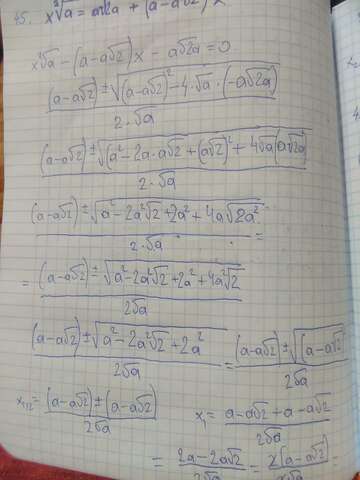 45. x²√a = a√2a + (a-a√2)x
x²√a - (a-a√2)x - a√2a = 0
(a-a√2) ± √(a-a√2)² - 4·√a·(-a√2a)
2·√a
(a-a√2) ± √(a² - 2a·a√2 + (a√2)² + 4√a(a√2a)
2·√a
(a-a√2) ± √a² - 2a²√2 + 2a² + 4a√2a²
2·√a =
= (a-a√2) ± √a² - 2a²√2 + 2a² + 4a²√2
2√a
(a-a√2) ± √a² - 2a²√2 + 2a² = (a-a√2) ± √(a-a√2)
2√a 2√a
x₁,₂ = (a-a√2) ± (a-a√2) x₁ = a-a√2 + a-a√2
2√a 2√a
= 2a - 2a√2 = 2(a-a√2) =
2√a